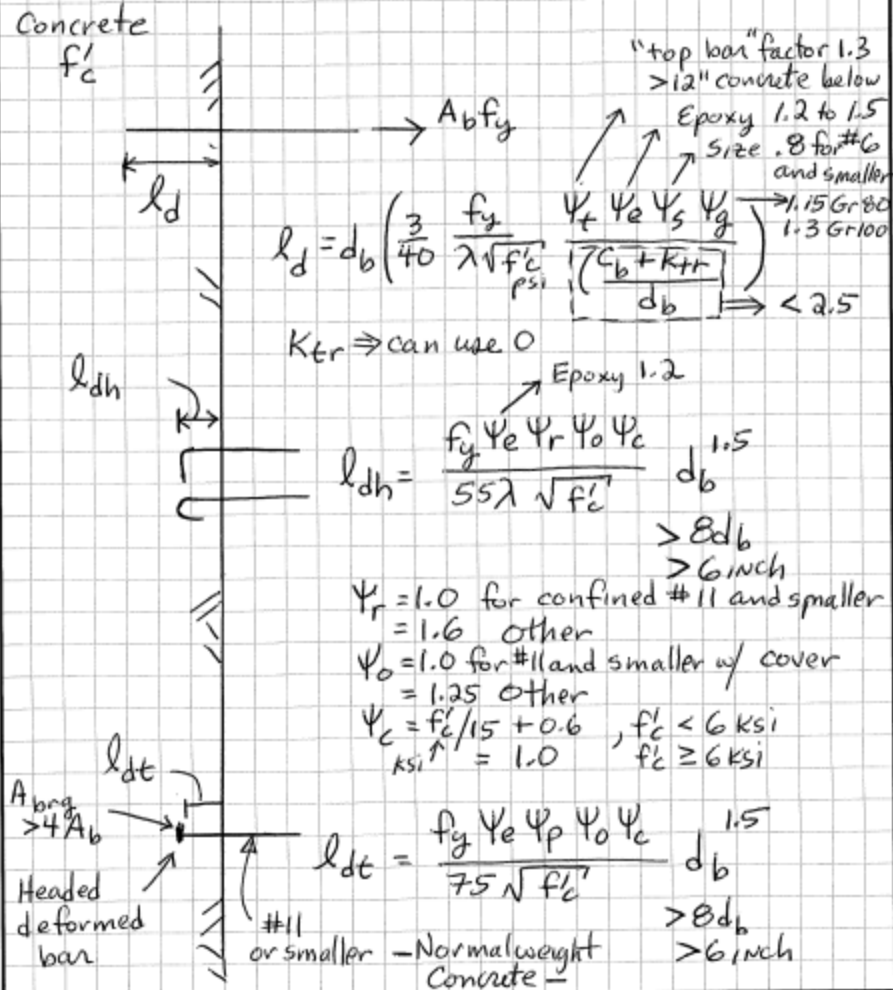 Concrete
f'c
"top bar" factor 1.3
>12" concrete below
Epoxy 1.2 to 1.5
Size .8 for #6
and smaller
1.15 Gr80
1.3 Gr100
Abfy
ld
ld = db (3/40 fy/(λ√f'c) ψt ψe ψs ψg/((cb + Ktr)/db))
psi
=> < 2.5
Ktr => can use 0
ldh
Epoxy 1.2
ldh = fy ψe ψr ψo ψc/(55λ √f'c) db^1.5
> 8db
> 6 inch
ψr = 1.0 for confined #11 and smaller
= 1.6 other
ψo = 1.0 for #11 and smaller w/ cover
= 1.25 Other
ψc = f'c/15 + 0.6 , f'c < 6 ksi
ksi = 1.0 f'c ≥ 6 ksi
ldt
Abrg
>4Ab
ldt = fy ψe ψp ψo ψc/(75 √f'c) db^1.5
>8db
>6 inch
Headed
deformed
bar
#11
or smaller – Normalweight
Concrete –